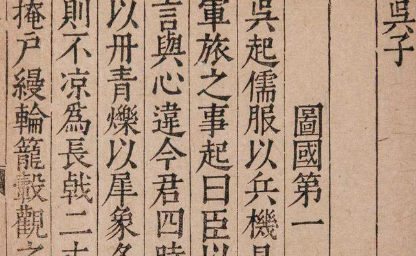 吳子
圖國第一
吳起儒服以兵機見
軍旅之事起曰臣以
言與心違今君四時
以丹青爍以犀象冬
則不凉為長戟二丈
掩戶縵輪籠轂觀之